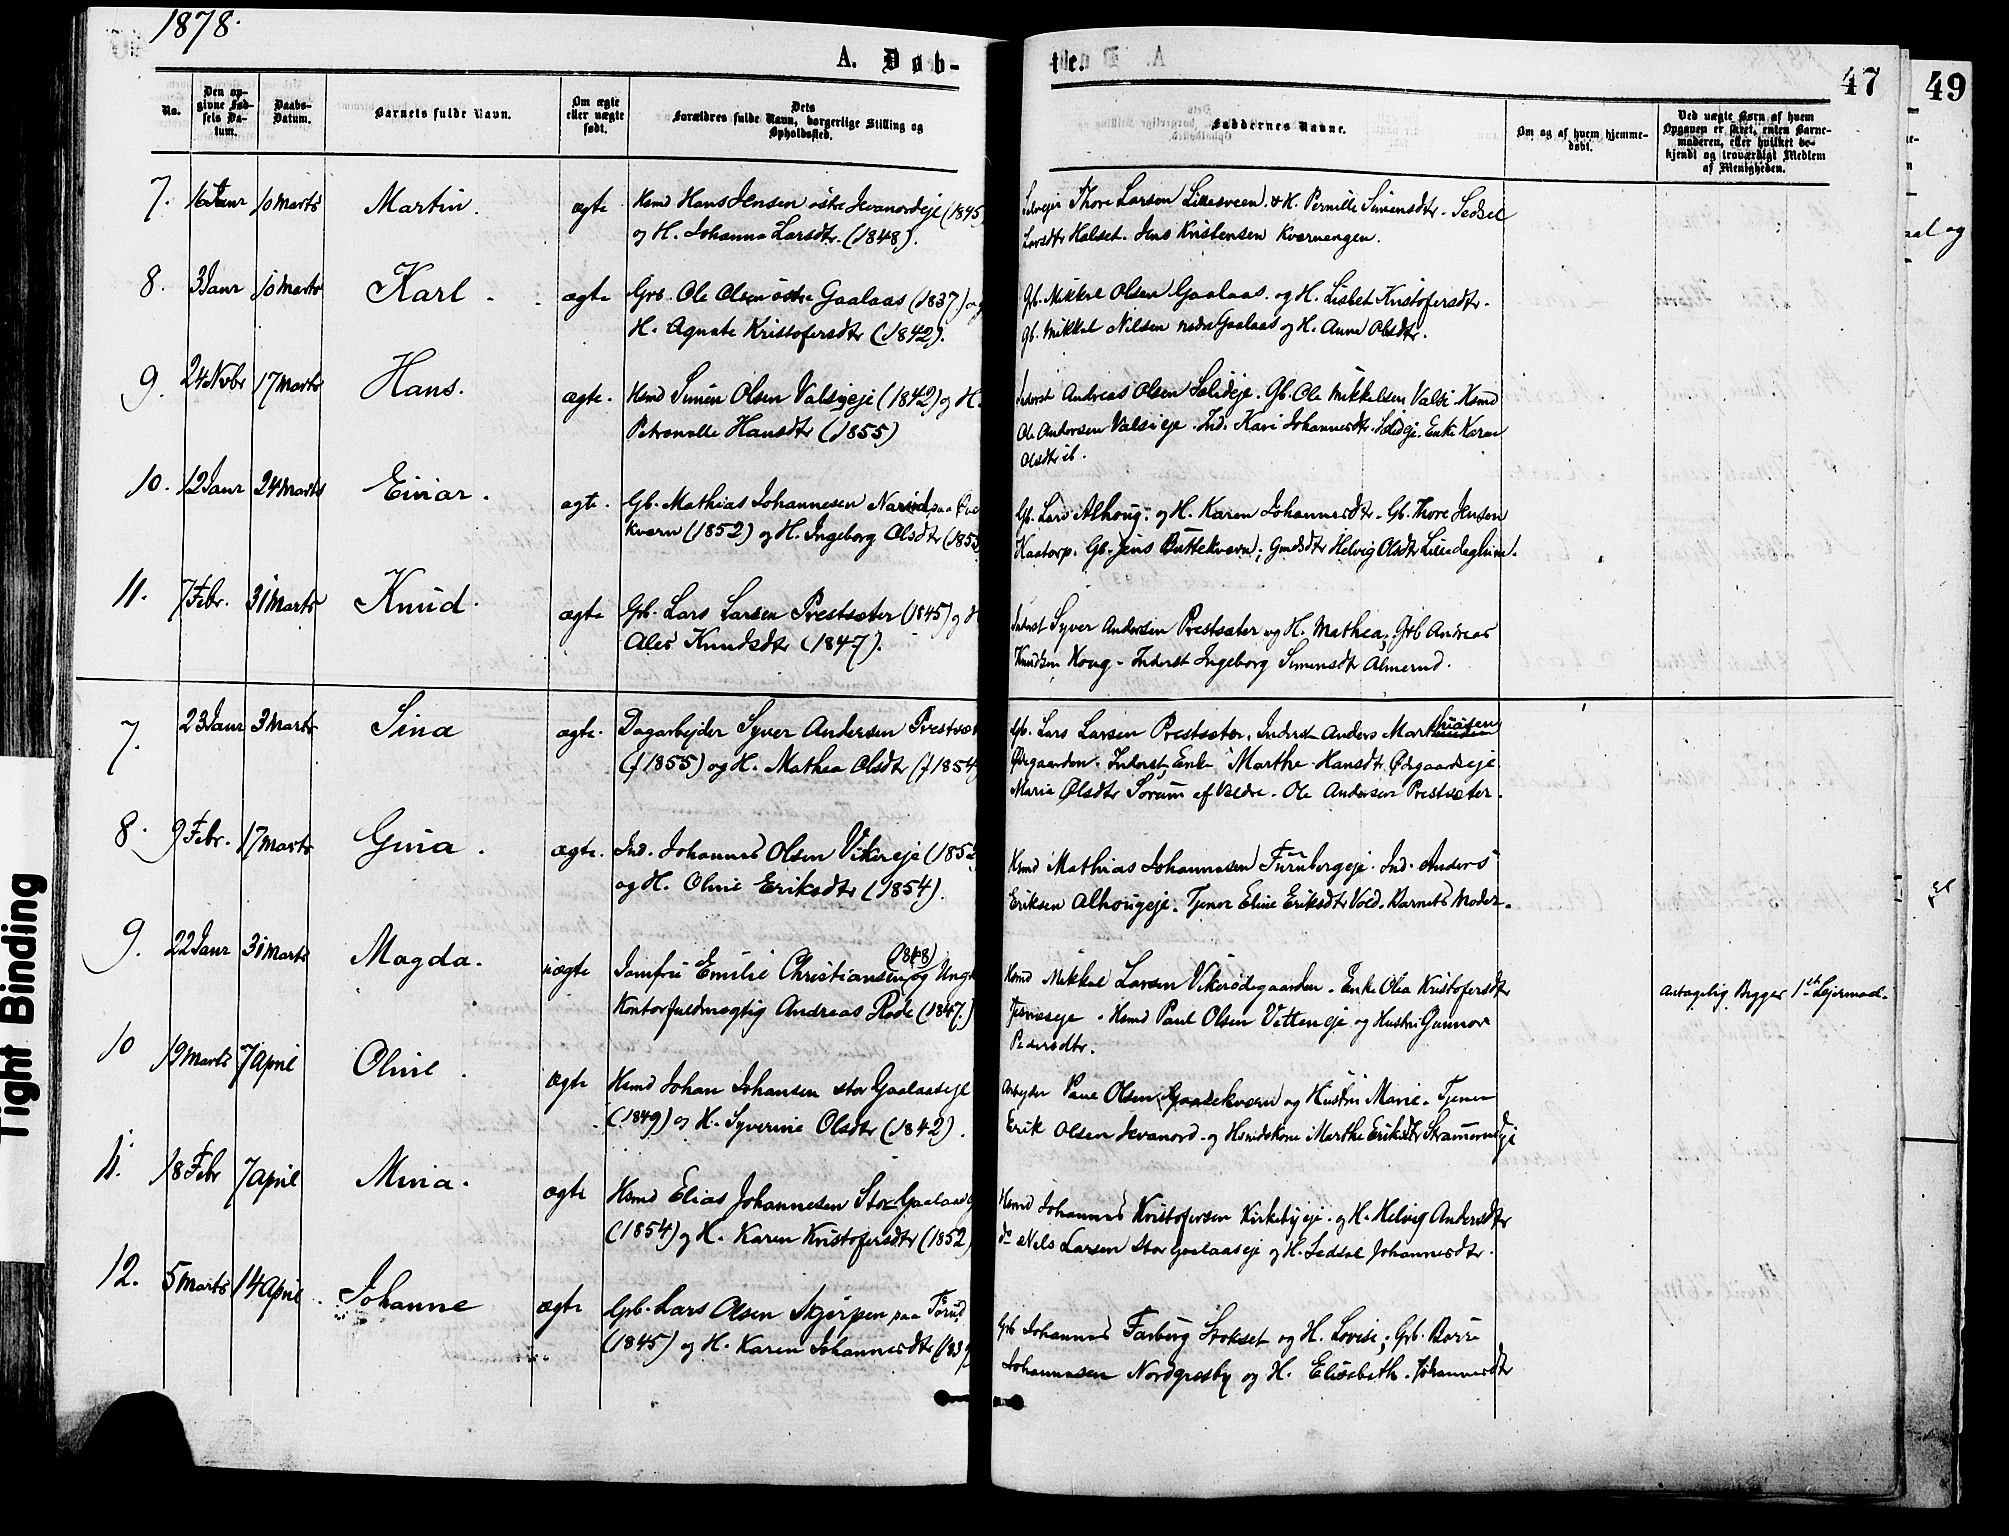 1878.
A. Døb-
No.
Den op-
givne Fød-
sels Da-
tum.
Daabs-
Datum.
Barnets fulde Navn.
Om ægte
eller uægte
født.
Dets
Forældres fulde Navn, borgerlige Stilling og
Opholdssted.
7. 16 Janr 10 Marts Martin. ægte Hsmd Hans Jensen østre Jevanordeje (1845)
og H. Johanne Larsdtr. (1848).
8. 3 Janr 10 Marts Karl. ægte Grb. Ole Olsen østre Gaalaas (1837) og
H. Agnete Kristofersdtr (1842).
9. 24 Novbr 17 Marts Hans. ægte. Hsmd Simen Olsen Valsieje (1842) og H.
Petronelle Hansdtr (1855)
10. 12 Janr 24 Marts Einar. ægte. Gb. Mathias Johannesen Narud paa
kvern (1852) og H. Ingeborg Olsdtr (1853
11. 7 Febr. 31 Marts Knud. ægte Gb. Lars Larsen Prestsæter (1845) og H
Ales Knudsdtr (1847).
7. 23 Janr 3 Marts Sina ægte. Dagarbejder Syver Andersen Prestsæt
(f 1855) og H. Mathea Olsdtr (f 1854)
8. 9 Febr. 17 Marts Gina. ægte. Ind. Johannes Olsen Vikereje (1852
og H. Oline Eriksdtr (1854).
9. 22 Janr 31 Marts Magda. uægte Jomfru Emilie Christiansen (1848) og Ungk
Kontorfuldmægtig Andreas Rode (1847.)
10 19 Marts 7 April Oline. ægte Hsmd Johan Johansen stor Gaalaaseje
(1849) og H. Syverine Olsdtr (1842).
11. 18 Febr 7 April Mina. ægte Hsmd Elias Johannesen Stor Gaalaas
(1854) og H. Karen Kristofersdtr (1852)
12. 5 Marts 14 April. Johanne ægte Grb. Lars Olsen Skjerpen paa Torud
(1845) og H. Karen Johannesdtr (1839)
te.
47
Faddernes Navne.
Om og af hvem hjemme-
døbt.
Ved uægte Børn af hvem
Opgaven er skeet, enten Barne-
moderen, eller hvilket be-
kjendt og troværdigt Medlem
af Menigheden.
Selvejer Thore Larsen Lillesveen. & H. Pernille Simensdtr. Sedsel
Larsdtr Halset. Jens Kristensen Kvernengen.
Gb. Mikkel Olsen Gaalaas. og H. Lisbet Kristofersdtr.
Gb. Mikkel Nilsen nedre Gaalaas og H. Anne Olsdtr.
Inderst Andreas Olsen Solideje. Gb. Ole Mikkelsen Valsi. Hsmd
Ole Andersen Valsieje. Ind. Kari Johannesdtr. Enke Karen
Olsdtr ib.
Gb. Lars Alhoug. og H. Karen Johannesdtr. Gb. Thore Jensen
Kaatorp. Gb. Jens Buttekvern; Gmdsdtr Helvig Olsdtr
Inderst Syver Andersen Prestsæter og H. Mathea; Grb Andreas
Knudsen Houg - Inderst Ingeborg Simensdtr Almerud.
Gb. Lars Larsen Prestsæter. Inderst Anders
Ødegaarden. Inderst, Enke Marthe Hansdtr. Ødegaardseje
Marie Olsdtr Sorum af Veldre. Ole Andersen Prestsæter.
Hsmd Mathias Johannesen Furubergeje. Ind. Anders
Eriksen Alhougeje. Tjener Eline Eriksdtr Vold. Barnets Moder.
Hsmd Mikkel Larsen Vikerødegaarden. Enke Olea Kristofersdtr
Hsmd Paul Olsen Vetteneje og Hustru Gunnor
Pedersdtr.
Arbejder Paul Olsen og Hustru Marie. Tjener
Erik Olsen Jevanord. og Hsmdskone Marthe Eriksdtr
Hsmd Johannes Kristofersen Kirkebyeje. og H. Helvig Andersdtr
do Nils Larsen stor Gaalaaseje og H. Sedsel Johannesdtr.
Grb Johannes Farberg Stokset og H. Lovise; Grb. Borre
Johannesen Nordgresby og H. Elisabeth. Johannesdtr
Antagelig Begges 1ste Lejermaal.
49
aal og
Tight Binding